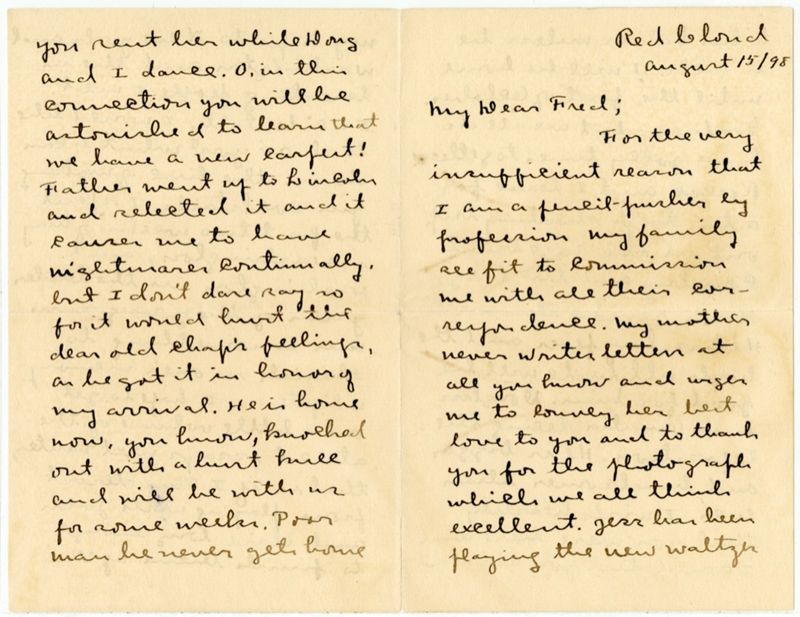 Red Cloud
August 15/98
My Dear Fred;
For the very
insufficient reason that
I am a pencil-pusher by
profession my family
see fit to commission
me with all their cor-
respondence. My mother
never writes letters at
all you know and urges
me to convey her best
love to you and to thank
you for the photograph
which we all think
excellent. Jess has been
playing the new waltzes
you sent her while Doug
and I dance. O, in this
connection you will be
astonished to learn that
we have a new carpet!
Father went up to Lincoln
and selected it and it
causes me to have
nightmares continually,
but I don't dare say so
for it would hurt the
dear old chap's feelings,
as he got it in honor of
my arrival. He is home
now, you know, knocked
out with a hurt knee
and will be with us
for some weeks. Poor
man he never gets home